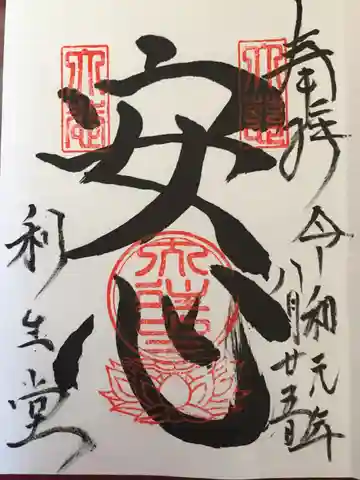 奉拝
令和元年
八月廿五日
安心
利生堂